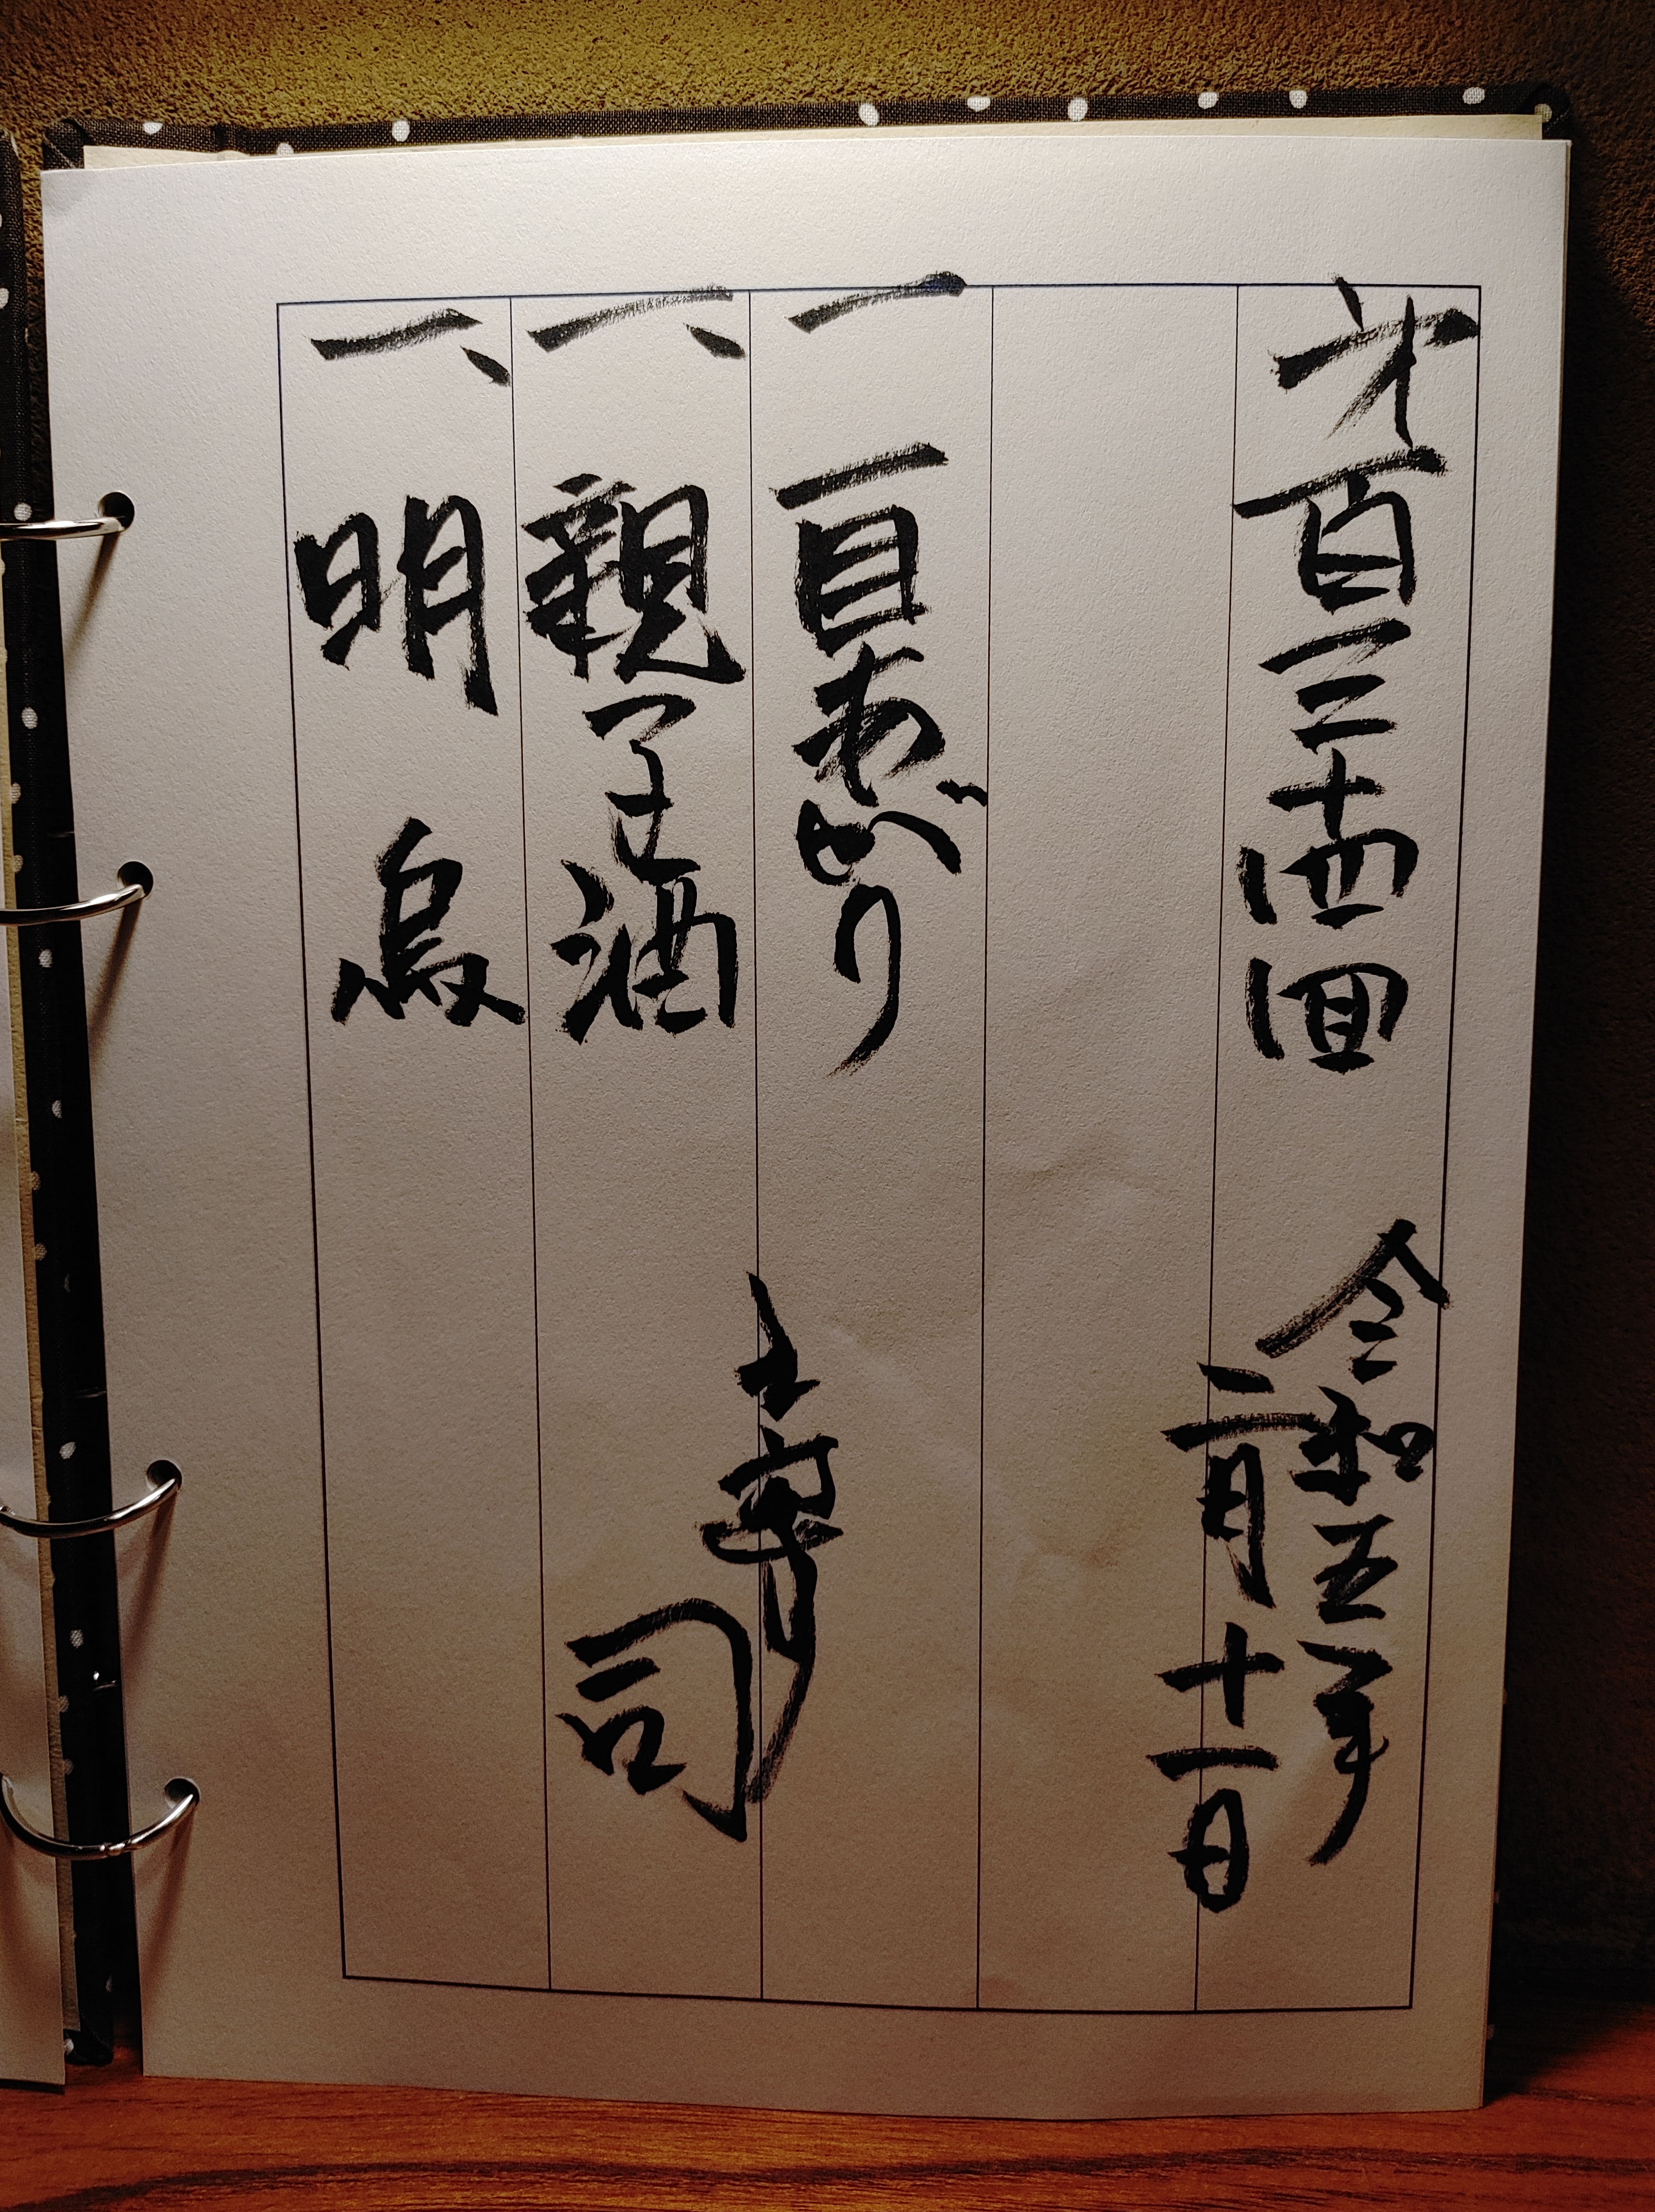 第百三十四回
令和五年
二月十一日
一 一目あがり
一、親子酒
一、明烏
司